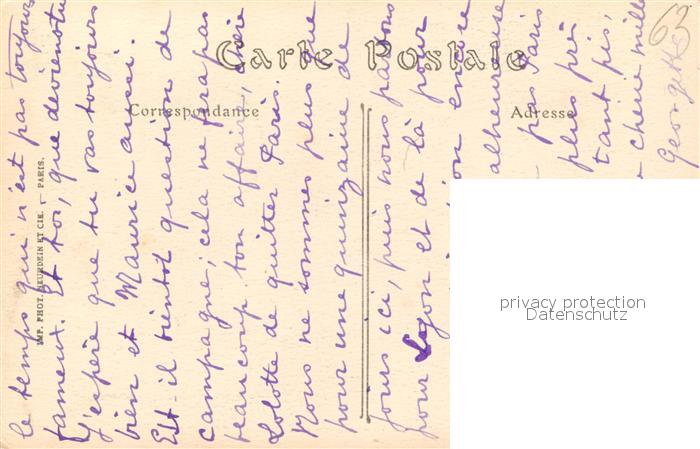 Carte Postale
Correspondance
Adresse
IMP. PHOT. NEURDEIN ET CIE. — PARIS.
63
le temps qui n'est pas toujours
tament. Et toi, que deviens-tu
J'espère que tu vas toujours
bien et Maurice aussi.
Est-il bientôt question de
campagne, cela ne fra pas
beaucoup ton affaire, chère
Lolotte de quitter Paris.
Nous ne sommes plus que
pour une quinzaine de
jours ici, puis nous partons
pour Lyon et de là pour
on encore
alheureuse
pas Paris
plus près
tant pis,
chérie mille
Georgette
privacy protection
Datenschutz